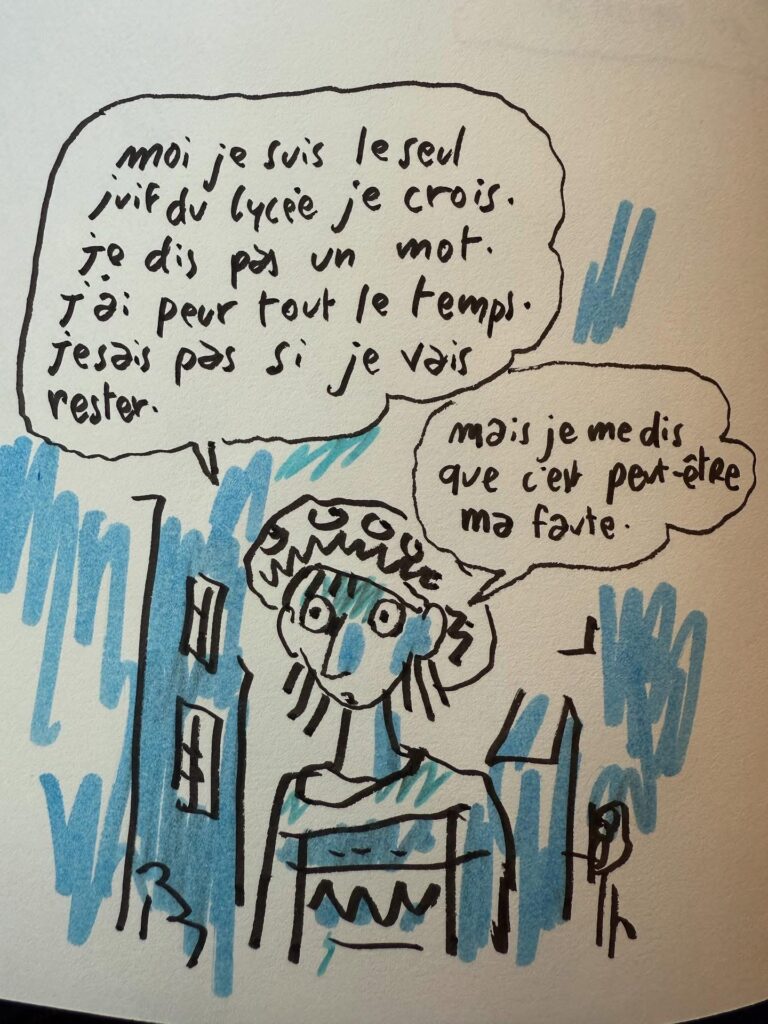 moi je suis le seul
juif du lycée je crois.
je dis pas un mot.
j'ai peur tout le temps.
je sais pas si je vais
rester.
mais je me dis
que c'est peut-être
ma faute.